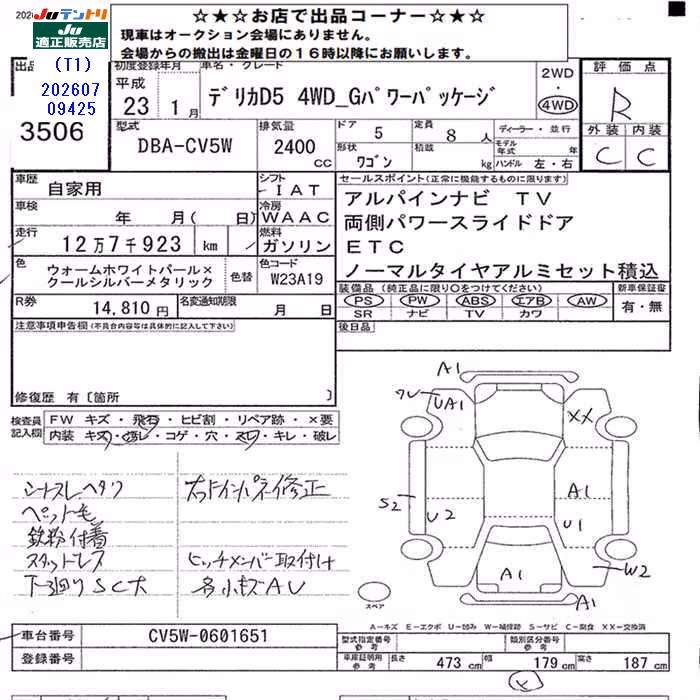 ★☆★お店で出品コーナー☆★☆
現車はオークション会場にありません。
会場からの搬出は金曜日の16時以降にお願いします。
JUテントリ
JU適正販売店
(T1)
202607
09425
3506
初度登録年月
平成
23 1月
車名・グレード
デリカD5 4WD_Gパワーパッケージ
2WD
・
4WD
評価点
R
外装 内装
C C
型式
DBA-CV5W
排気量
2400 cc
ドア 5
定員 8 人
形状 ワゴン
積載 kg
ディーラー・並行
モデル年式 年
ハンドル 左・右
車歴 自家用
シフト IAT
車検 年 月( 日)
冷房 WAAC
走行 12万7千923 km
燃料 ガソリン
色 ウォームホワイトパール×
クールシルバーメタリック
色替
色コード W23A19
R券 14,810円
名変通知期限 月 日
セールスポイント(正常に機能するものに限ります)
アルパインナビ TV
両側パワースライドドア
ETC
ノーマルタイヤアルミセット積込
装備品 (純正品に限り○をつけてください)
PS PW ABS エアB AW
SR ナビ TV カワ
新車保証書
有・無
後日品
注意事項申告欄(不具合内容等は具体的に記入して下さい)
修復歴 有〔箇所 〕
検査員記入欄
FW キズ・飛石・ヒビ割・リペア跡・×要
内装 キズ・汚レ・コゲ・穴・スレ・キレ・破レ
シートスレ、ヘタリ
ペット毛
鉄粉付着
スタットレス
下廻りSC大
右フロントインパネ修正
ヒッチメンバー取付け
各小キズAU
A1
UA1
XX
S2
U2
A1
U1
A1
W2
A1
スペア
A-キズ E-エクボ U-凹み W-補修跡 S-サビ C-腐食 XX-交換済
車台番号 CV5W-0601651
登録番号
型式指定番号 参考
類別区分番号 参考
車庫証明用 参考
長さ 473 cm
幅 179 cm
高さ 187 cm